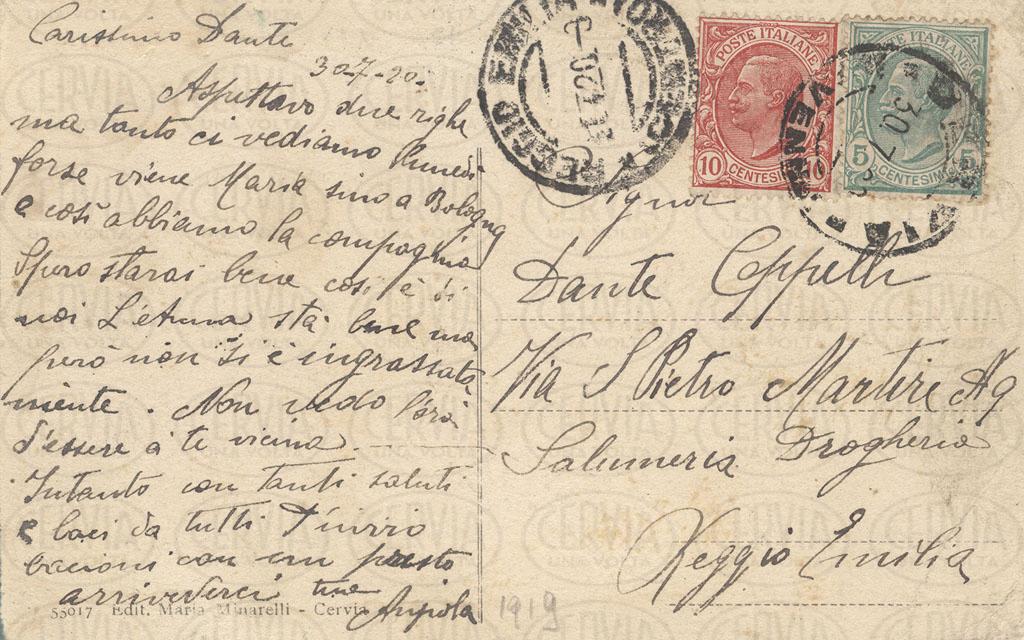 Carissimo Dante
30-7-20.
Aspettavo due righe
ma tanto ci vediamo lunedì
forse viene Maria sino a Bologna
e così abbiamo la compagnia
Spero starai bene così è di
noi L'Emma sta bene ma
però non si è ingrassata
niente. Non vedo l'ora
d'essere a te vicina
Intanto con tanti saluti
e baci da tutti T'invio
bacioni con un presto
arrivederci tua
55017 Edit. Maria Minarelli - Cervia
1919
REGGIO EMILIA
POSTE ITALIANE
10 CENTESIMI
POSTE ITALIANE
5 CENTESIMI 5
30 7
Signor
Dante Coppelli
Via S Pietro Martire
Salumeria Drogheria
Reggio Emilia
CERVIA
UNA VOLTA